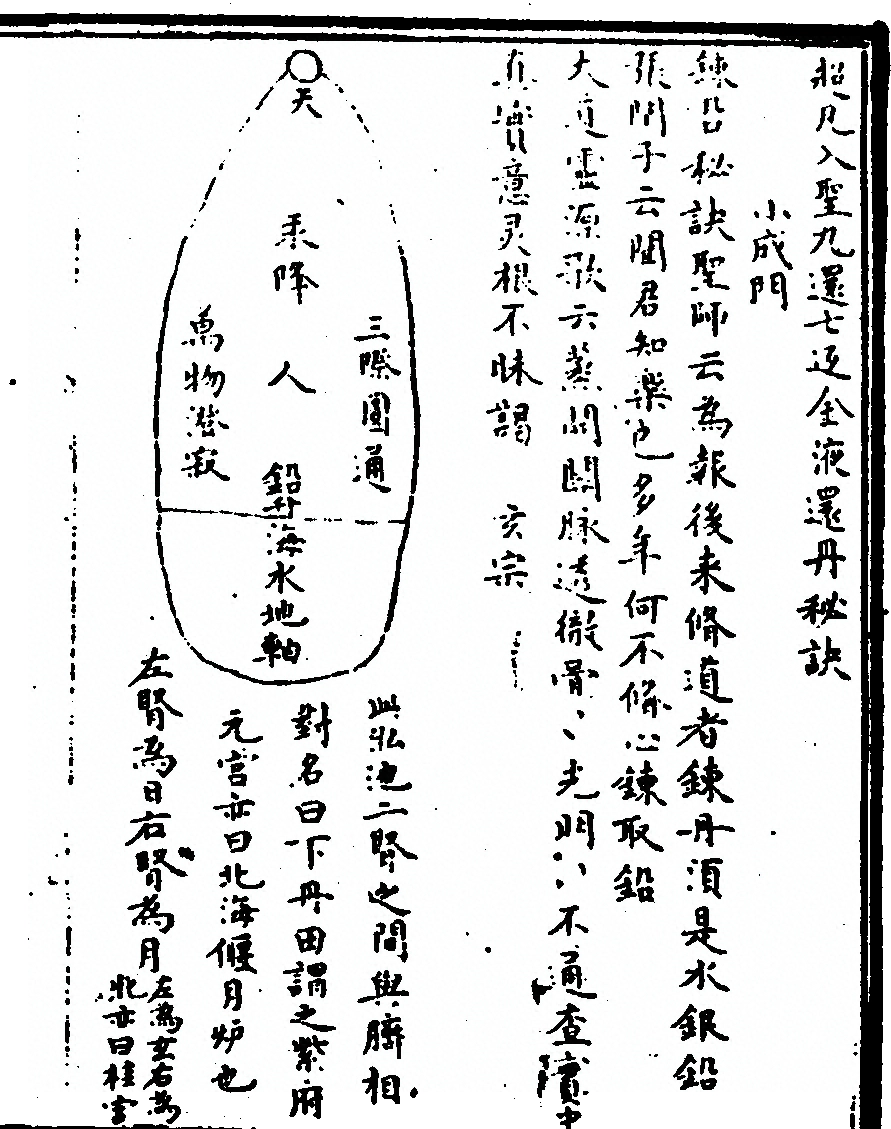 超凡入聖九還七返金液還丹秘訣
小成門
鍊鉛秘訣聖師云為報後来脩道者鍊丹須是水銀鉛
張問子云聞君知藥已多年何不脩心鍊取鉛
大道靈源歌云蒸開關脉透徹骨、、光明、、不通查濱中
真實意灵根不昧謁 玄宗
天
汞降
人
鉛升海水地軸
三際圓通
萬物潛寂
此㳒池二腎之間與臍相
對名曰下丹田謂之紫府
元宮亦曰北海偃月炉也
左腎為日右腎為月
左為玄右為
牝亦曰桂宮